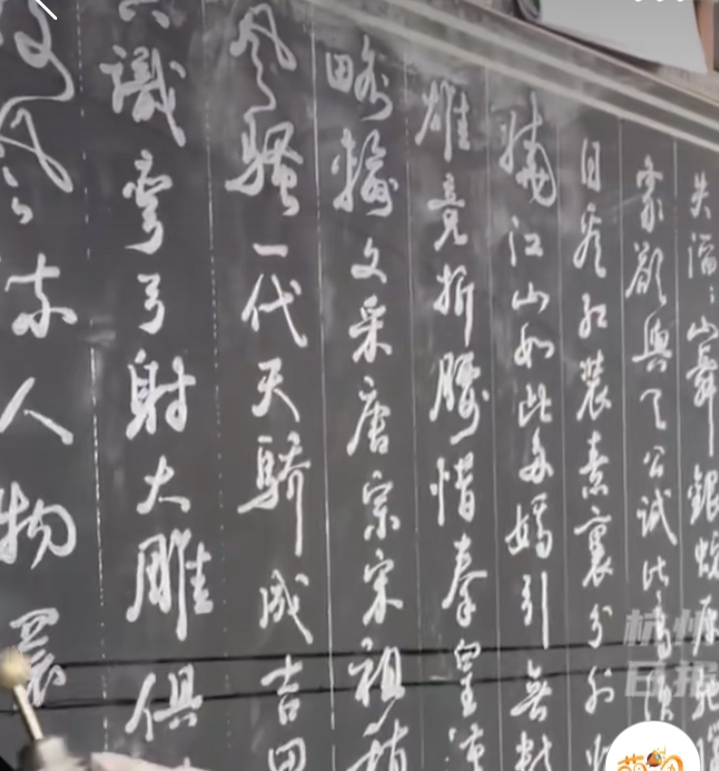 失滔〻山舞銀蛇原馳蠟
象欲與天公試比高須
日看紅裝素裹分外妖
嬈江山如此多嬌引無數
雄竟折腰惜秦皇漢
略輸文采唐宗宋祖稍
风騷一代天驕成吉思
識彎弓射大雕俱
风流人物還
杭州日报